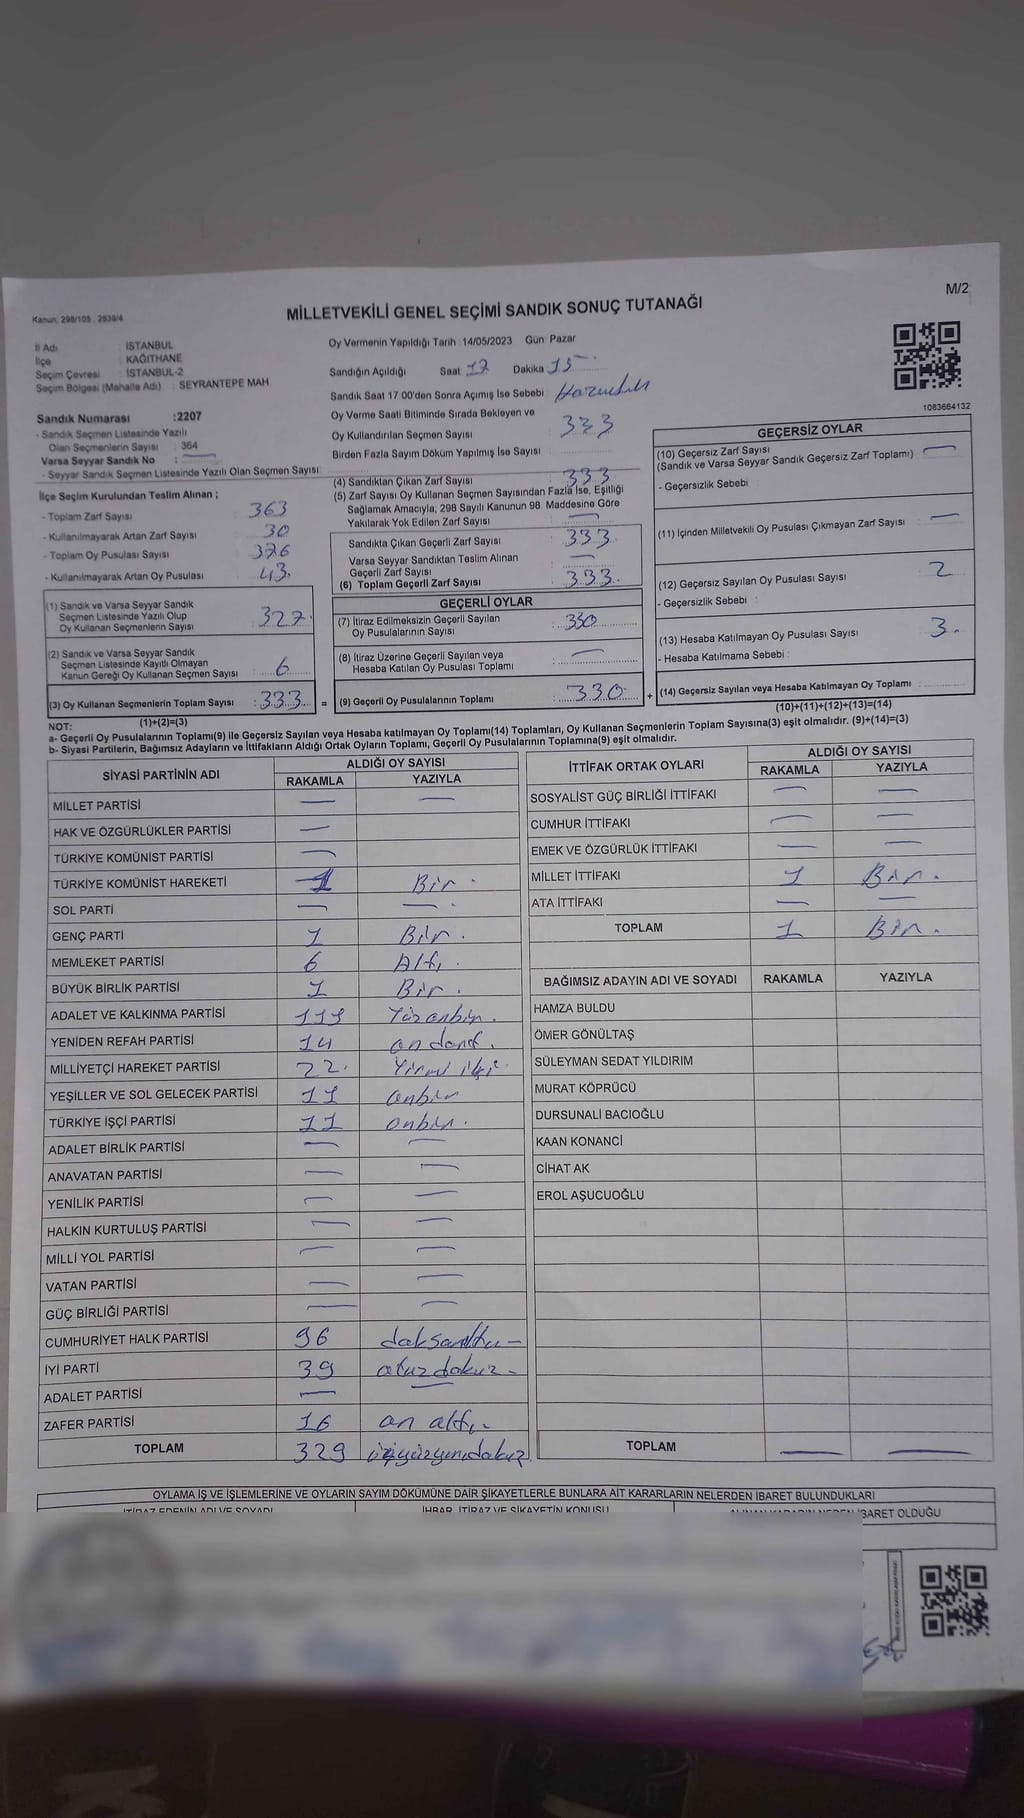 M/2
Kanun: 298/105 , 2839/4
MİLLETVEKİLİ GENEL SEÇİMİ SANDIK SONUÇ TUTANAĞI
İl Adı : İSTANBUL
İlçe : KAĞITHANE
Seçim Çevresi : İSTANBUL-2
Seçim Bölgesi (Mahalle Adı) : SEYRANTEPE MAH.
Sandık Numarası :2207
- Sandık Seçmen Listesinde Yazılı
Olan Seçmenlerin Sayısı : 364
Varsa Seyyar Sandık No : —
- Seyyar Sandık Seçmen Listesinde Yazılı Olan Seçmen Sayısı:
Oy Vermenin Yapıldığı Tarih : 14/05/2023 Gün: Pazar
Sandığın Açıldığı Saat 17 Dakika 15
Sandık Saat 17.00'den Sonra Açımış İse Sebebi
Oy Verme Saati Bitiminde Sırada Bekleyen ve
Oy Kullandırılan Seçmen Sayısı : 333
Birden Fazla Sayım Döküm Yapılmış İse Sayısı :
1083664132
İlçe Seçim Kurulundan Teslim Alınan ;
- Toplam Zarf Sayısı : 363
- Kullanılmayarak Artan Zarf Sayısı : 30
- Toplam Oy Pusulası Sayısı : 376
- Kullanılmayarak Artan Oy Pusulası : 43.
(1) Sandık ve Varsa Seyyar Sandık
Seçmen Listesinde Yazılı Olup
Oy Kullanan Seçmenlerin Sayısı : 327.
(2) Sandık ve Varsa Seyyar Sandık
Seçmen Listesinde Kayıtlı Olmayan
Kanun Gereği Oy Kullanan Seçmen Sayısı : 6
(3) Oy Kullanan Seçmenlerin Toplam Sayısı : 333 =
(4) Sandıktan Çıkan Zarf Sayısı : 333
(5) Zarf Sayısı Oy Kullanan Seçmen Sayısından Fazla İse, Eşitliği
Sağlamak Amacıyla, 298 Sayılı Kanunun 98. Maddesine Göre
Yakılarak Yok Edilen Zarf Sayısı : —
Sandıkta Çıkan Geçerli Zarf Sayısı : 333
Varsa Seyyar Sandıktan Teslim Alınan
Geçerli Zarf Sayısı : —
(6) Toplam Geçerli Zarf Sayısı : 333.
GEÇERLİ OYLAR
(7) İtiraz Edilmeksizin Geçerli Sayılan
Oy Pusulalarının Sayısı : 330
(8) İtiraz Üzerine Geçerli Sayılan veya
Hesaba Katılan Oy Pusulası Toplamı : —
(9) Geçerli Oy Pusulalarının Toplamı : 330 +
GEÇERSİZ OYLAR
(10) Geçersiz Zarf Sayısı
(Sandık ve Varsa Seyyar Sandık Geçersiz Zarf Toplamı) : —
- Geçersizlik Sebebi :
(11) İçinden Milletvekili Oy Pusulası Çıkmayan Zarf Sayısı : —
(12) Geçersiz Sayılan Oy Pusulası Sayısı : 2
- Geçersizlik Sebebi :
(13) Hesaba Katılmayan Oy Pusulası Sayısı : 3.
- Hesaba Katılmama Sebebi :
(14) Geçersiz Sayılan veya Hesaba Katılmayan Oy Toplamı :
(10)+(11)+(12)+(13)=(14)
NOT: (1)+(2)=(3)
a- Geçerli Oy Pusulalarının Toplamı(9) ile Geçersiz Sayılan veya Hesaba katılmayan Oy Toplamı(14) Toplamları, Oy Kullanan Seçmenlerin Toplam Sayısına(3) eşit olmalıdır. (9)+(14)=(3)
b- Siyasi Partilerin, Bağımsız Adayların ve İttifakların Aldığı Ortak Oyların Toplamı, Geçerli Oy Pusulalarının Toplamına(9) eşit olmalıdır.
SİYASİ PARTİNİN ADI ALDIĞI OY SAYISI
RAKAMLA YAZIYLA
MİLLET PARTİSİ — —
HAK VE ÖZGÜRLÜKLER PARTİSİ —
TÜRKİYE KOMÜNİST PARTİSİ —
TÜRKİYE KOMÜNİST HAREKETİ 1 Bir.
SOL PARTİ — —.
GENÇ PARTİ 1 Bir.
MEMLEKET PARTİSİ 6 Altı.
BÜYÜK BİRLİK PARTİSİ 1 Bir.
ADALET VE KALKINMA PARTİSİ 111 Yüzonbir.
YENİDEN REFAH PARTİSİ 14 on dört.
MİLLİYETÇİ HAREKET PARTİSİ 22. Yirmi iki.
YEŞİLLER VE SOL GELECEK PARTİSİ 11 onbir
TÜRKİYE İŞÇİ PARTİSİ 11 onbir.
ADALET BİRLİK PARTİSİ — —
ANAVATAN PARTİSİ — —
YENİLİK PARTİSİ — —
HALKIN KURTULUŞ PARTİSİ — —
MİLLİ YOL PARTİSİ — —
VATAN PARTİSİ — —
GÜÇ BİRLİĞİ PARTİSİ — —
CUMHURİYET HALK PARTİSİ 96 doksanaltı—
İYİ PARTİ 39 otuzdokuz-
ADALET PARTİSİ — —
ZAFER PARTİSİ 16 on altı.-
TOPLAM 329 üçyüzyirmidokuz
İTTİFAK ORTAK OYLARI ALDIĞI OY SAYISI
RAKAMLA YAZIYLA
SOSYALİST GÜÇ BİRLİĞİ İTTİFAKI — —
CUMHUR İTTİFAKI — —
EMEK VE ÖZGÜRLÜK İTTİFAKI — —
MİLLET İTTİFAKI 1 Bir.
ATA İTTİFAKI — —
TOPLAM 1 Bir.
BAĞIMSIZ ADAYIN ADI VE SOYADI RAKAMLA YAZIYLA
HAMZA BULDU
ÖMER GÖNÜLTAŞ
SÜLEYMAN SEDAT YILDIRIM
MURAT KÖPRÜCÜ
DURSUNALİ BACIOĞLU
KAAN KONANCİ
CİHAT AK
EROL AŞUCUOĞLU
TOPLAM — —
OYLAMA İŞ VE İŞLEMLERİNE VE OYLARIN SAYIM DÖKÜMÜNE DAİR ŞİKAYETLERLE BUNLARA AİT KARARLARIN NELERDEN İBARET BULUNDUKLARI
İTİRAZ EDENİN ADI VE SOYADI İHBAR, İTİRAZ VE ŞİKAYETİN KONUSU ALINAN KARARIN NEDEN İBARET OLDUĞU